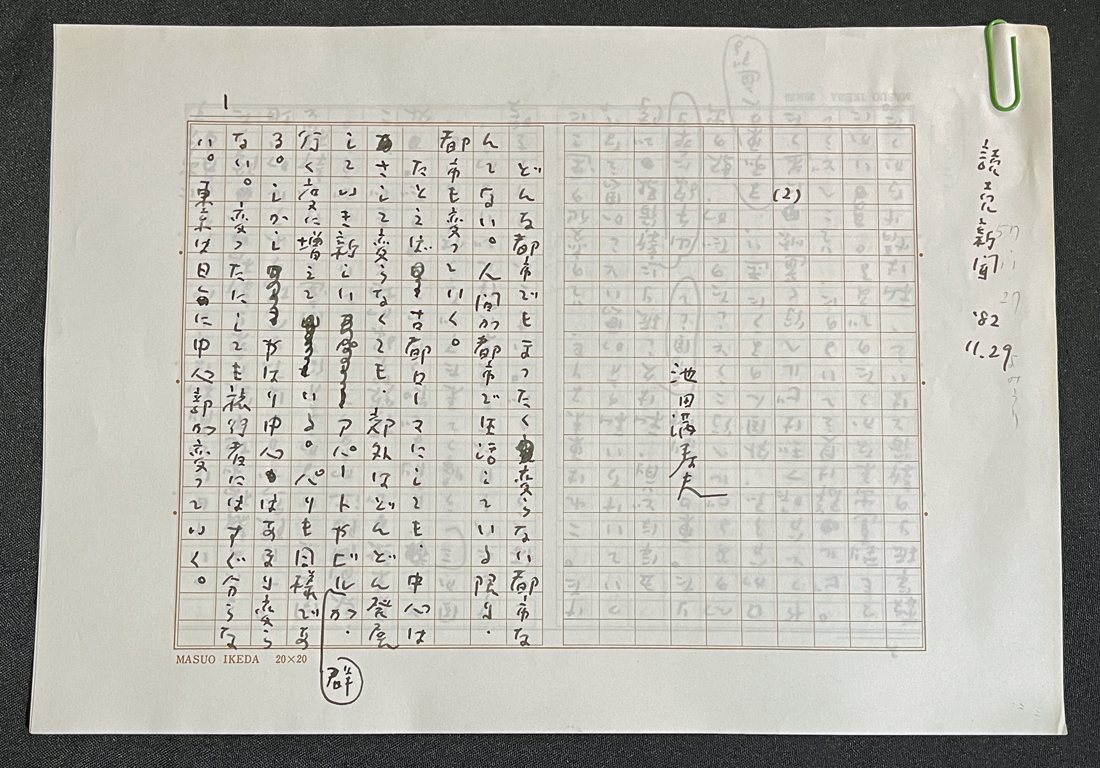 読売新聞 '82 11.29
(2)
池田満寿夫
どんな都市でもまったく変らない都市な
んてない。人間が都市で生活している限り、
都市も変っていく。
たとえば古都ローマにしても、中心は
さして変らなくても、郊外はどんどん発展
していき新しいアパートやビル群が、
行く度に増えている。パリも同様であ
る。しかしやはり中心はあまり変ら
ない。変ったにしても旅行者にはすぐ分らな
い。東京は日毎に中心部が変っていく。
1
MASUO IKEDA 20×20